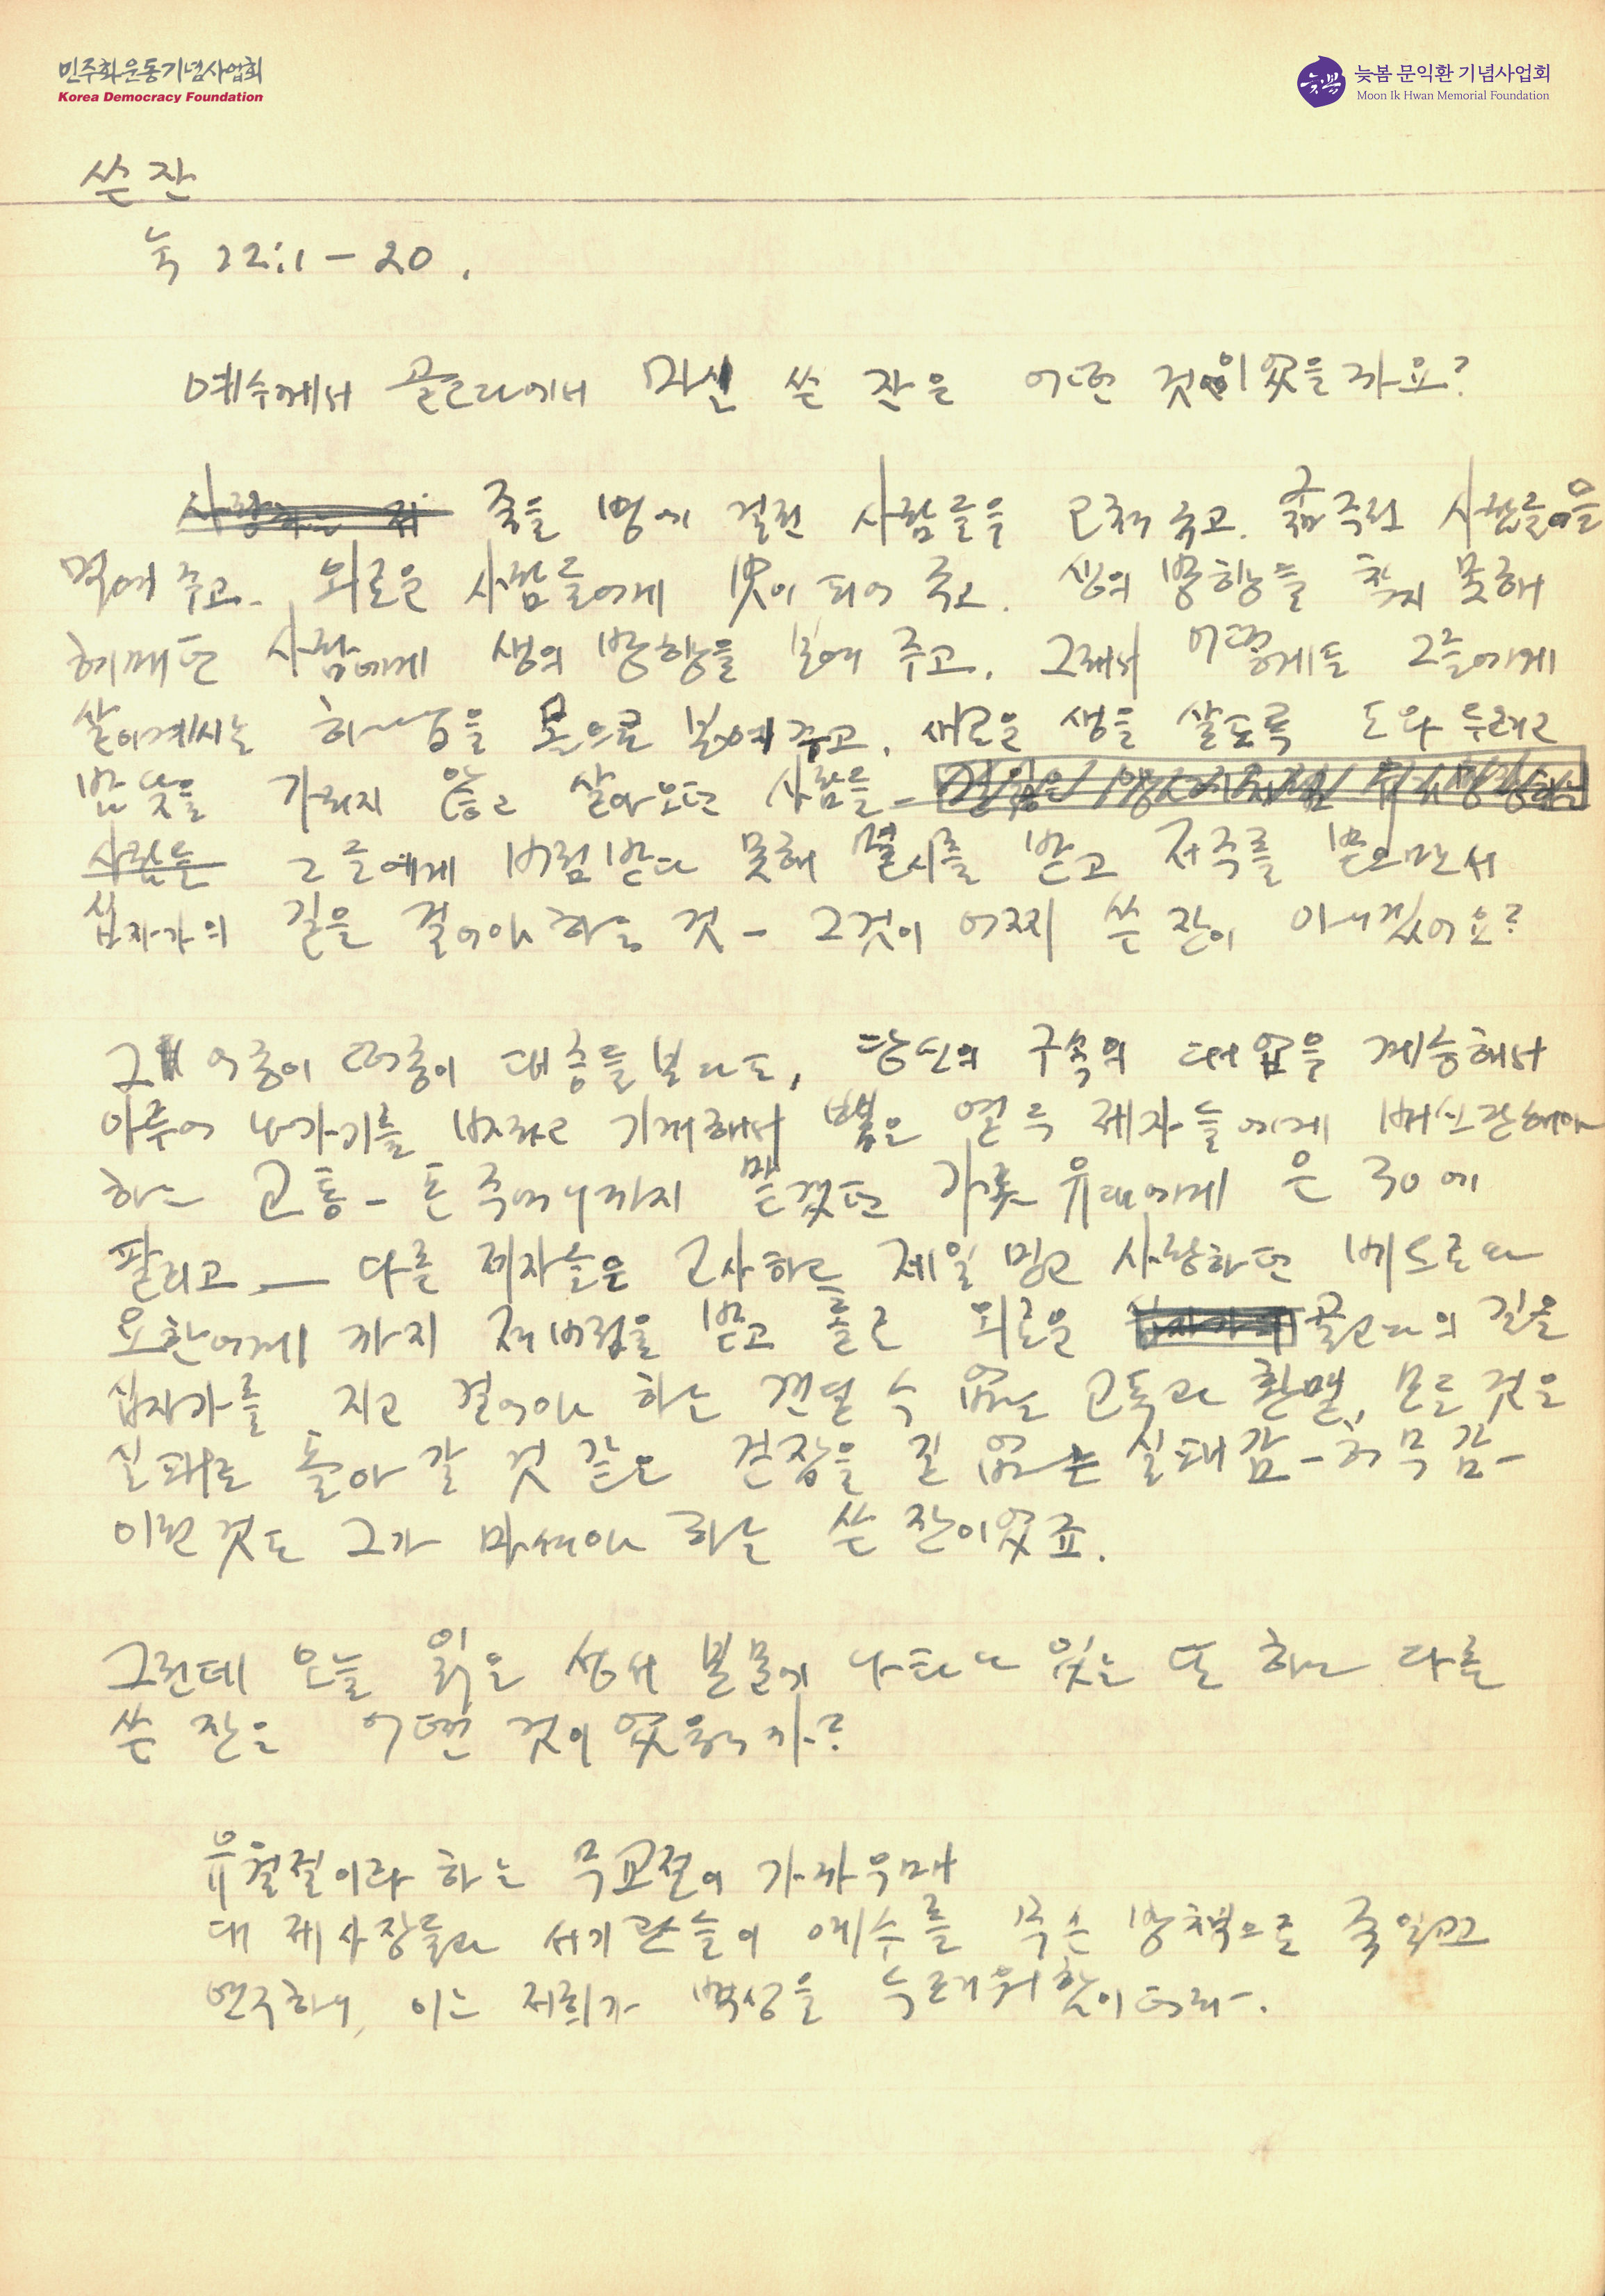 민주화운동기념사업회
Korea Democracy Foundation
늦봄 문익환 기념사업회
Moon Ik Hwan Memorial Foundation
쓴 잔
눅 22:1-20.
예수께서 골고다에서 마신 쓴 잔은 어떤 것이었을까요?
죽을 병에 걸린 사람들을 고쳐 주고. 굶주린 사람들을
먹여 주고. 외로운 사람들에게 벗이 되어 주고. 생의 방향을 찾지 못해
헤매던 사람에게 생의 방향을 보여 주고. 그래서 어떻게든 그들에게
살아계시는 하나님을 몸으로 보여 주고. 새로운 생을 살도록 도와 주려고
밤낮을 가리지 않고 살아오던 사람들-
사람들 그들에게 버림받다 못해 멸시를 받고 저주를 받으면서
십자가의 길을 걸어야 하는 것 - 그것이 어찌 쓴 잔이 아니겠어요?
그 어중이 떠중이 대중들보다도, 당신의 구속의 대업을 계승해서
이루어 나가기를 바라고 기대해서 뽑은 열두 제자들에게 배신당해야
하는 고통 - 돈 주머니까지 맡겼던 가룟 유다에게 은 30에
팔리고 — 다른 제자들은 고사하고 제일 믿고 사랑하던 베드로와
요한에게 까지 저버림을 받고 홀로 외로운 골고다의 길을
십자가를 지고 걸어야 하는 견딜 수 없는 고독과 환멸, 모든 것은
실패로 돌아 갈 것 같은 걷잡을 길 없는 실패감 - 허무감 -
이런 것도 그가 마셔야 하는 쓴 잔이었죠.
그런데 오늘 읽은 성서 본문에 나타나 있는 또 하나 다른
쓴 잔은 어떤 것이었읍니까?
유월절이라 하는 무교절이 가까우매
대제사장들과 서기관들이 예수를 무슨 방책으로 죽일꼬
연구하니, 이는 저희가 백성을 두려워함이더라.